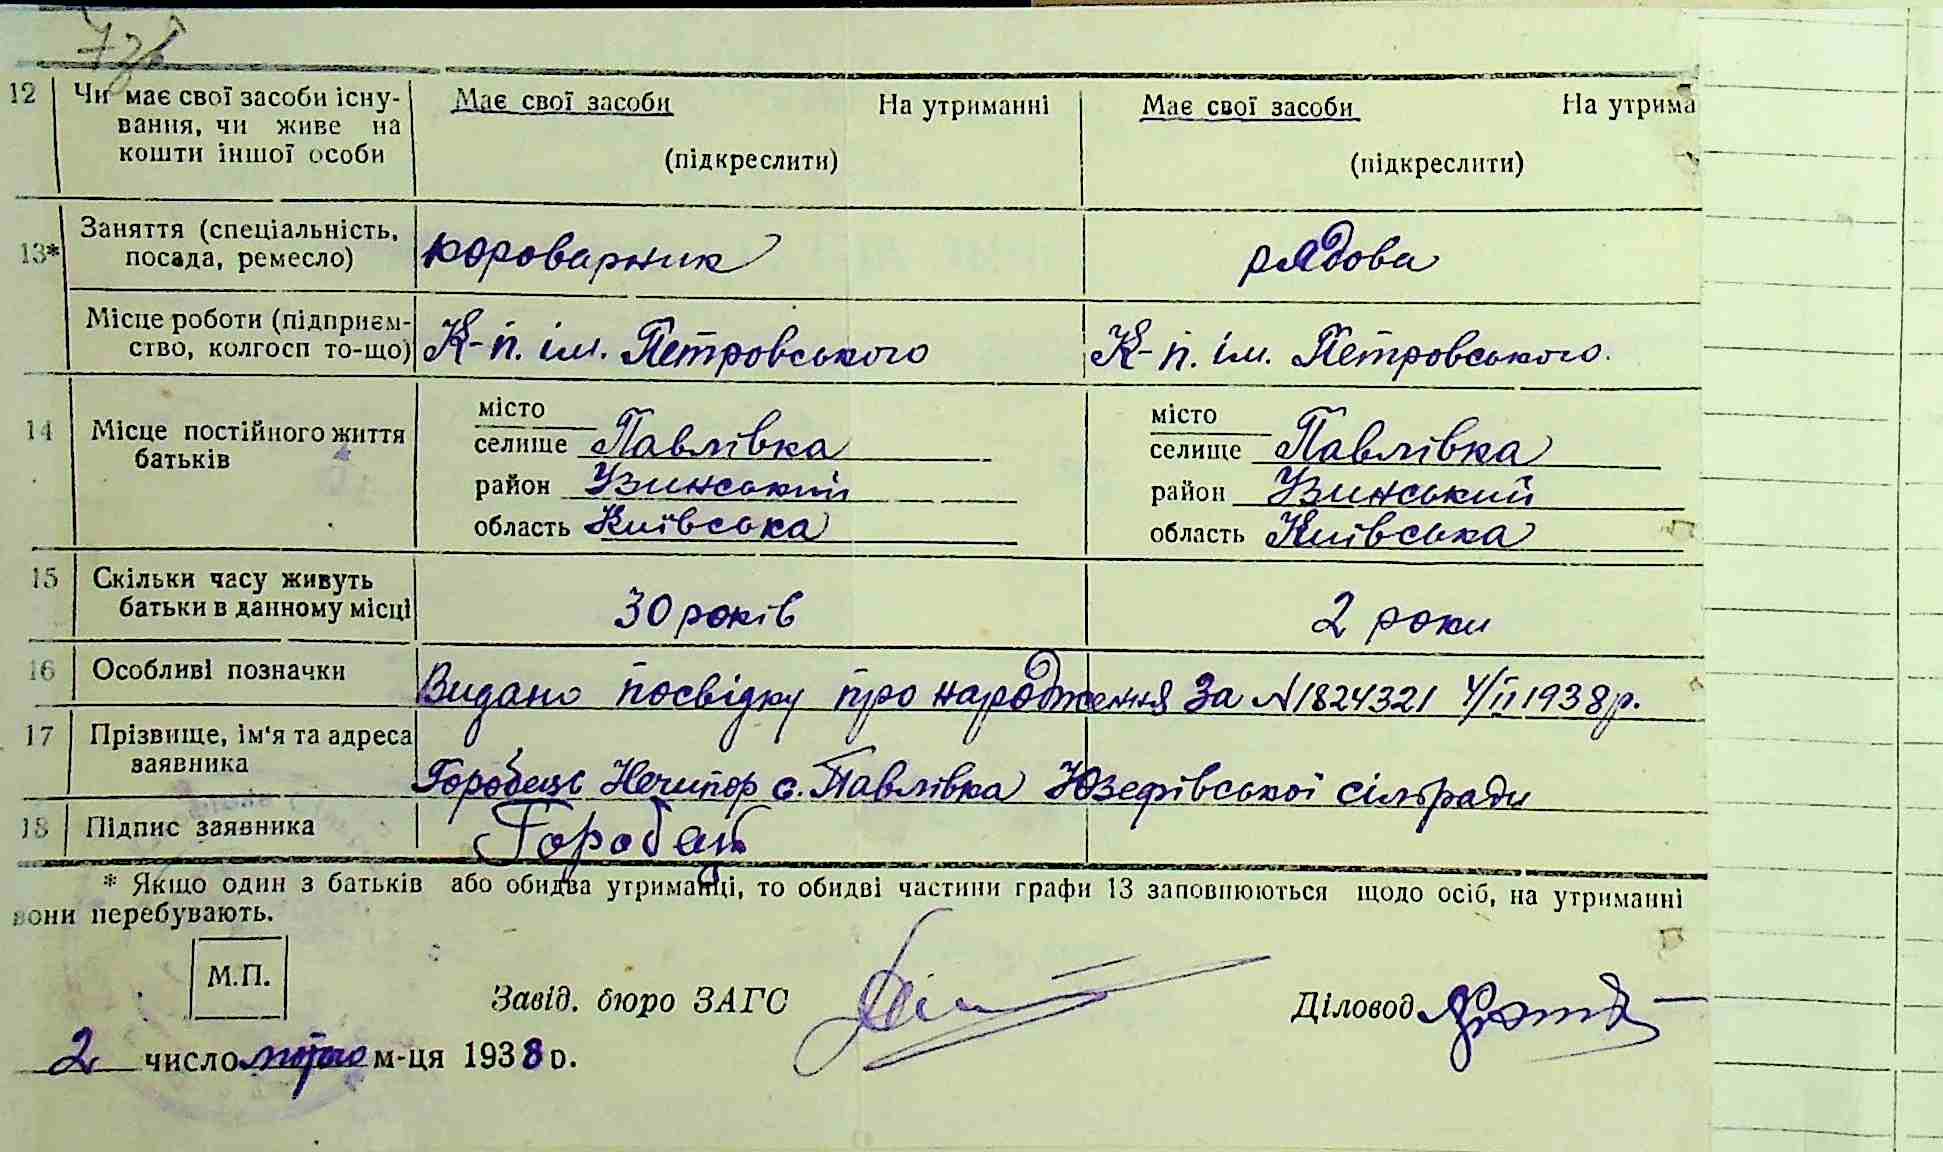 7зв
12 Чи має свої засоби існу- Має свої засоби На утриманні Має свої засоби На утрима
вання, чи живе на
кошти іншої особи (підкреслити) (підкреслити)
13* Заняття (спеціальність,
посада, ремесло) короварник рядова
Місце роботи (підприєм-
ство, колгосп то-що) К-п. ім. Петровського К-п. ім. Петровського.
14 Місце постійного життя
батьків
місто місто
селище Павлівка селище Павлівка
район Узинський район Узинський
область Київська область Київська
15 Скільки часу живуть
батьки в данному місці 30 років 2 роки
16 Особливі позначки Видано посвідку про народження За №1824321 4/II 1938р.
17 Прізвище, ім'я та адреса
заявника Горобець Нечипор с. Павлівка Юзефівської сільради
18 Підпис заявника Горобець
* Якщо один з батьків або обидва утриманці, то обидві частини графи 13 заповнюються щодо осіб, на утриманні
вони перебувають.
М.П.
Завід. бюро ЗАГС Діловод
2 число лютого м-ця 1938 р.